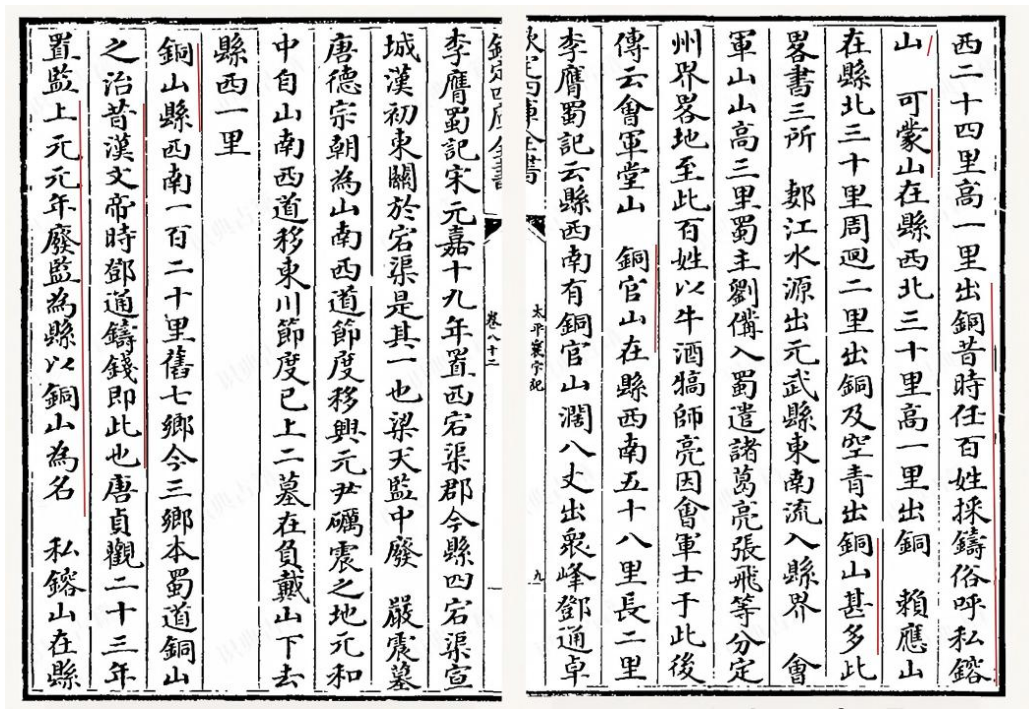 西二十四里高一里出銅昔時任百姓採鑄俗呼私鎔
山　可蒙山在縣西北三十里高一里出銅　賴應山
在縣北三十里周迴二里出銅及空青出銅山甚多此
畧書三所　郪江水源出元武縣東南流入縣界　會
軍山山高三里蜀主劉備入蜀遣諸葛亮張飛等分定
州界畧地至此百姓以牛酒犒師亮因會軍士于此後
傳云會軍堂山　銅官山在縣西南五十八里長二里
李膺蜀記云縣西南有銅官山濶八丈出衆峰鄧通卓
欽定四庫全書
太平寰宇記
九
欽定四庫全書
卷八十二
李膺蜀記宋元嘉十九年置西宕渠郡今縣四宕渠宣
城漢初東關於宕渠是其一也梁天監中廢　嚴震墓
唐德宗朝為山南西道節度移興元尹礪震之地元和
中自山南西道移東川節度已上二墓在負戴山下去
縣西一里
銅山縣西南一百二十里舊七鄉今三鄉本蜀道銅山
之治昔漢文帝時鄧通鑄錢即此也唐貞觀二十三年
置監上元元年廢監為縣以銅山為名　私鎔山在縣